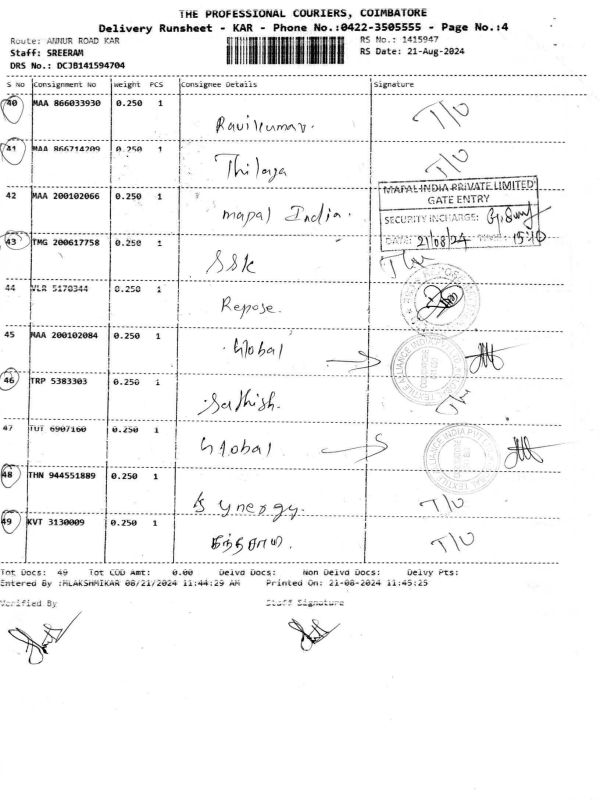 THE PROFESSIONAL COURIERS, COIMBATORE
Delivery Runsheet - KAR - Phone No.:0422-3505555 - Page No.:4
Route: ANNUR ROAD KAR
RS No.: 1415947
Staff: SREERAM
RS Date: 21-Aug-2024
DRS No.: DCJB141594704
S No Consignment No Weight PCS Consignee Details Signature
40 MAA 866033930 0.250 1
Ravikumar. T/O
41 MAA 866714209 0.250 1
Thilaga T/O
MAPAL INDIA PRIVATE LIMITED
GATE ENTRY
42 MAA 200102066 0.250 1
mapal India.
SECURITY INCHARGE:
DATE: 21/08/24 15:10
43 TMG 200617758 0.250 1
SSK
44 VLR 5170344 0.250 1
Repose.
45 MAA 200102084 0.250 1
Global
46 TRP 5383303 0.250 1
Sathish.
47 TUT 6907160 0.250 1
Global
48 THN 944551889 0.250 1
Synergy. T/O
49 KVT 3130009 0.250 1
கந்தசாமி. T/O
Tot Docs: 49 Tot COD Amt: 0.00 Delvd Docs: Non Delvd Docs: Delvy Pts:
Entered By :MLAKSHMIKAR 08/21/2024 11:44:29 AM Printed On: 21-08-2024 11:45:25
Verified By Staff Signature